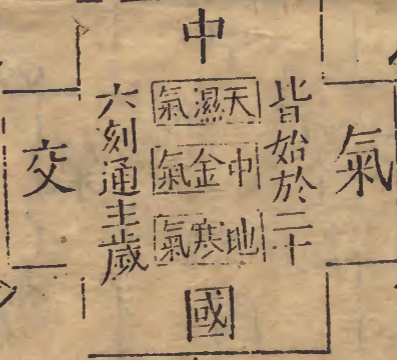 中
氣
皆始於二十
天濕氣
中金氣
地寒氣
六刻通主歲
交
國